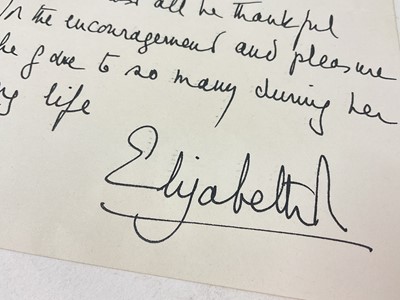 all be thankful
for the encouragement and pleasure
she gave to so many during her
life
Elizabeth R